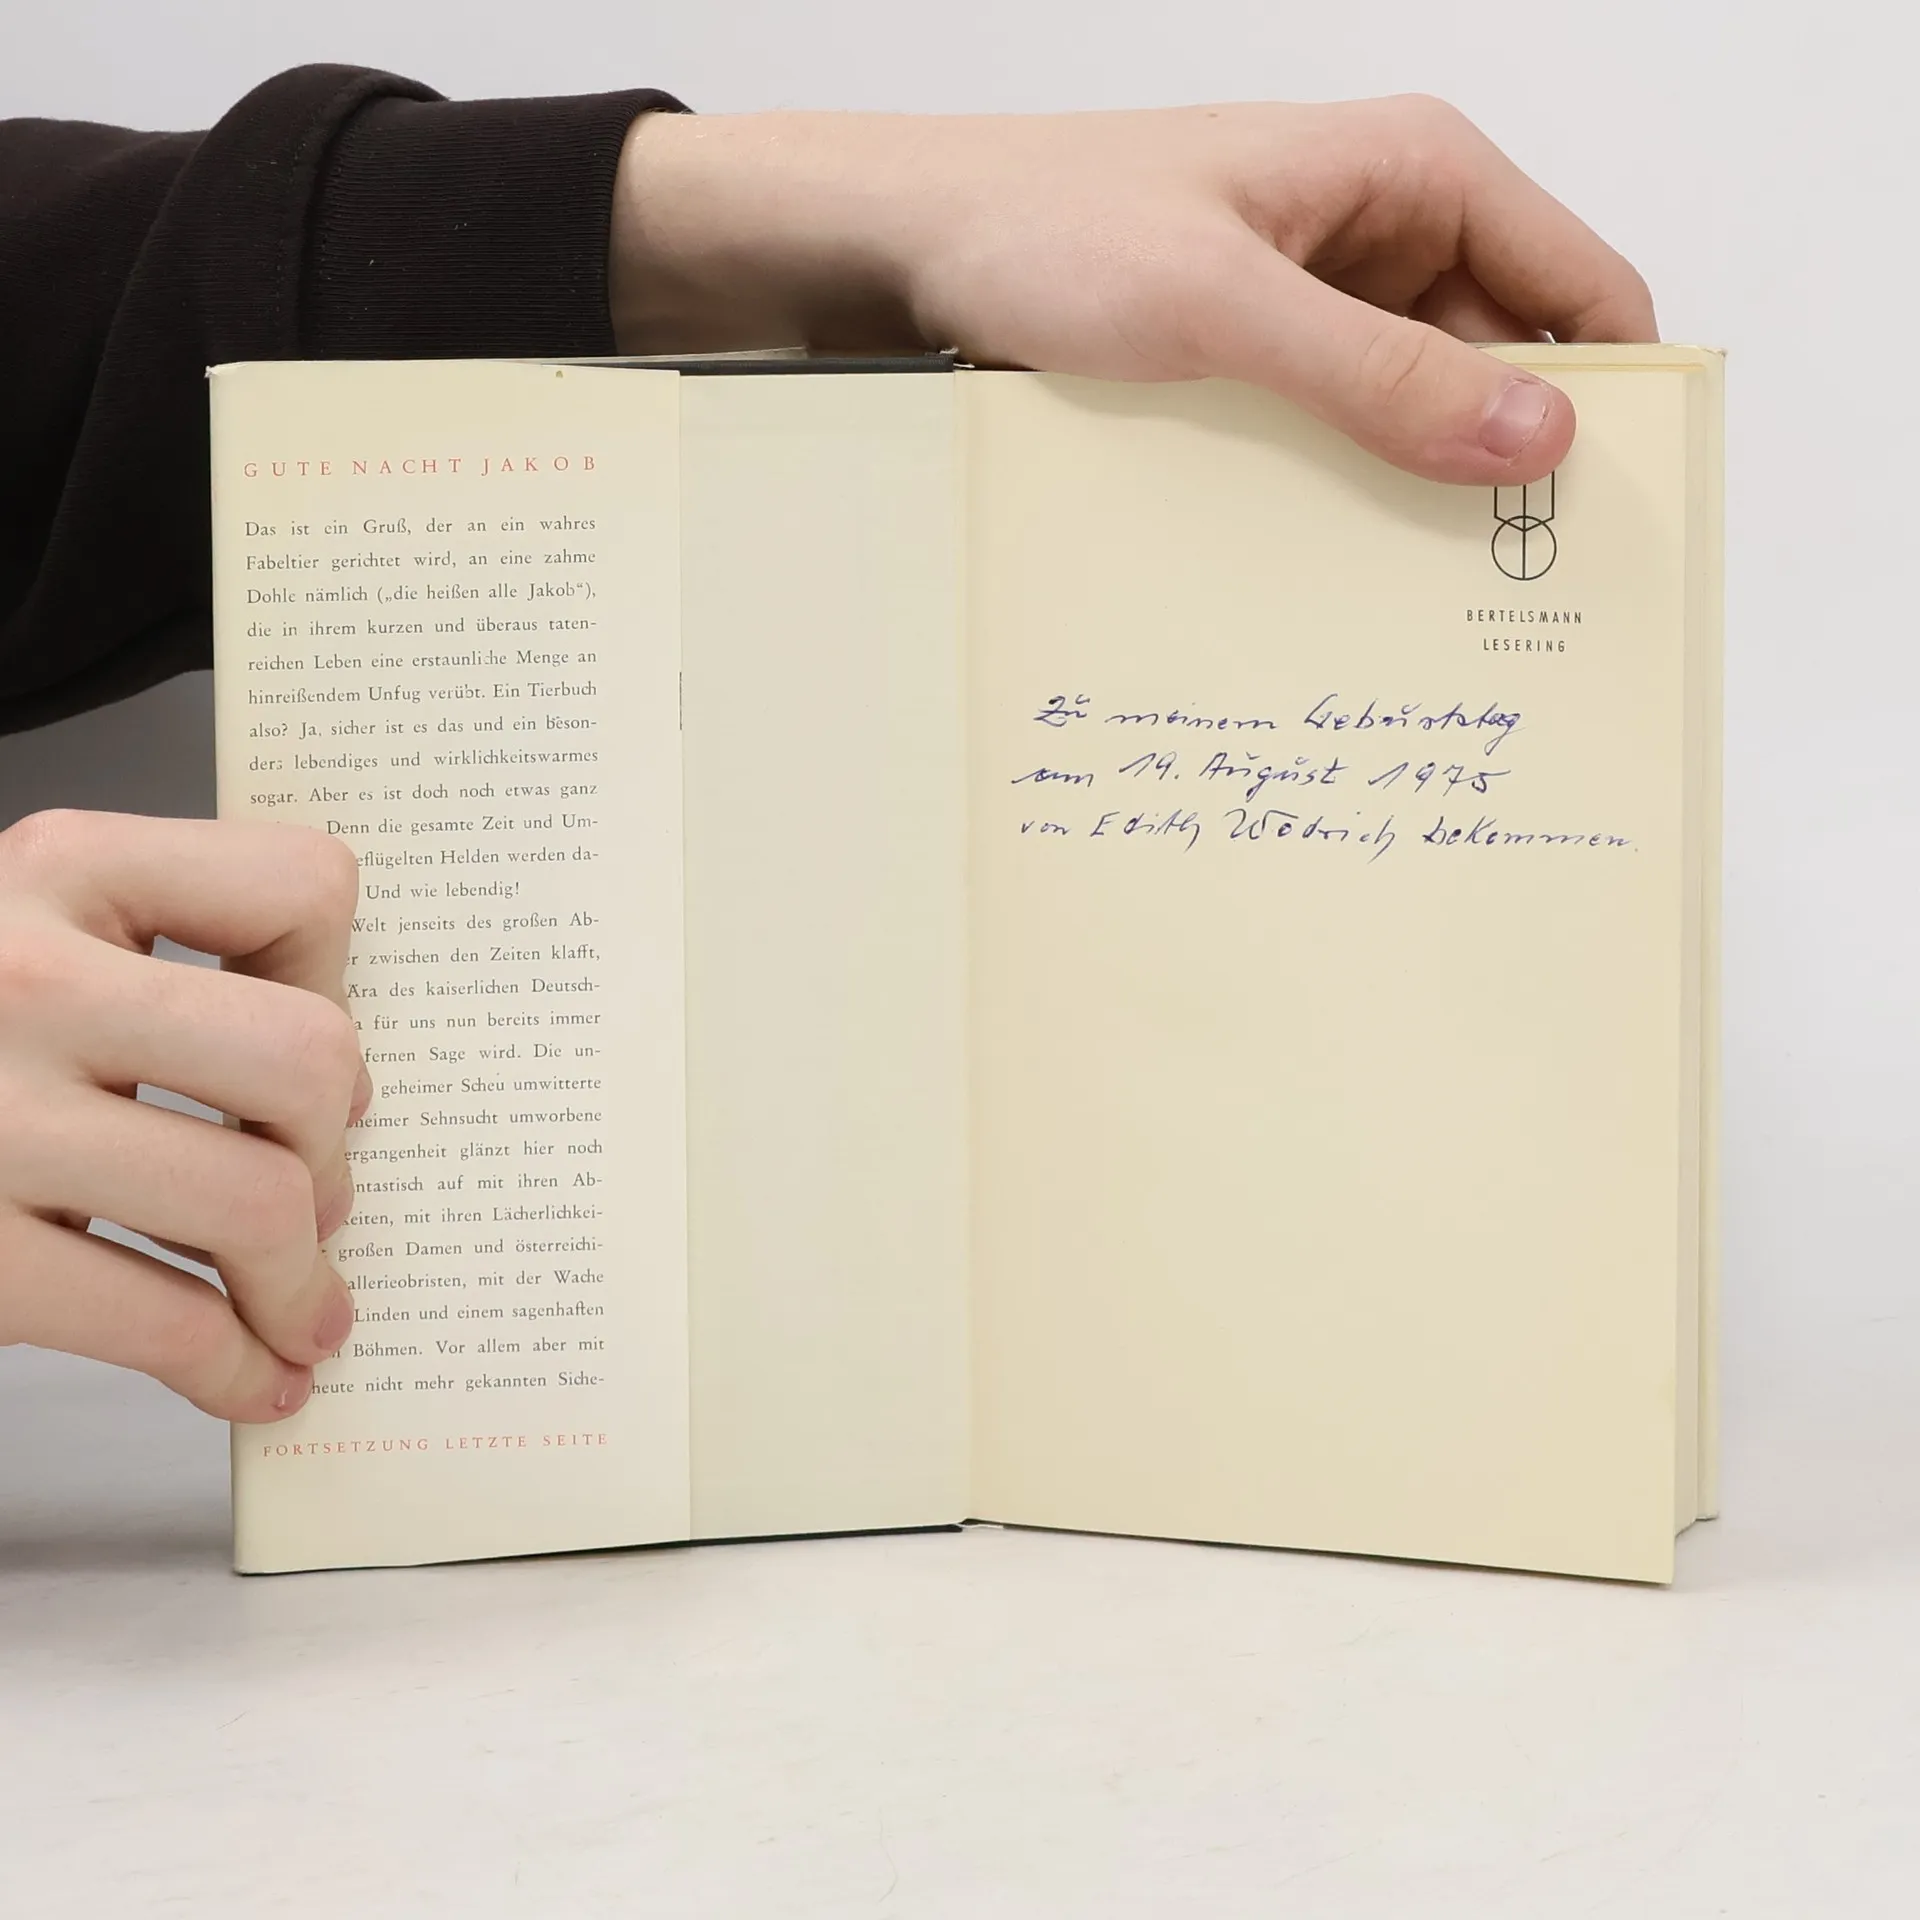 GUTE NACHT JAKOB
Das ist ein Gruß, der an ein wahres
Fabeltier gerichtet wird, an eine zahme
Dohle nämlich („die heißen alle Jakob“),
die in ihrem kurzen und überaus taten-
reichen Leben eine erstaunliche Menge an
hinreißendem Unfug verübt. Ein Tierbuch
also? Ja, sicher ist es das und ein beson-
ders lebendiges und wirklichkeitswarmes
sogar. Aber es ist doch noch etwas ganz
Denn die gesamte Zeit und Um-
eflügelten Helden werden da-
Und wie lebendig!
Welt jenseits des großen Ab-
r zwischen den Zeiten klafft,
Ära des kaiserlichen Deutsch-
a für uns nun bereits immer
fernen Sage wird. Die un-
geheimer Scheu umwitterte
heimer Sehnsucht umworbene
ergangenheit glänzt hier noch
ntastisch auf mit ihren Ab-
keiten, mit ihren Lächerlichkei-
großen Damen und österreichi-
allerieobristen, mit der Wache
Linden und einem sagenhaften
n Böhmen. Vor allem aber mit
heute nicht mehr gekannten Siche-
FORTSETZUNG LETZTE SEITE
BERTELSMANN
LESERING
Zu meinem Geburtstag
am 19. August 1975
von Edith Wodrich bekommen.